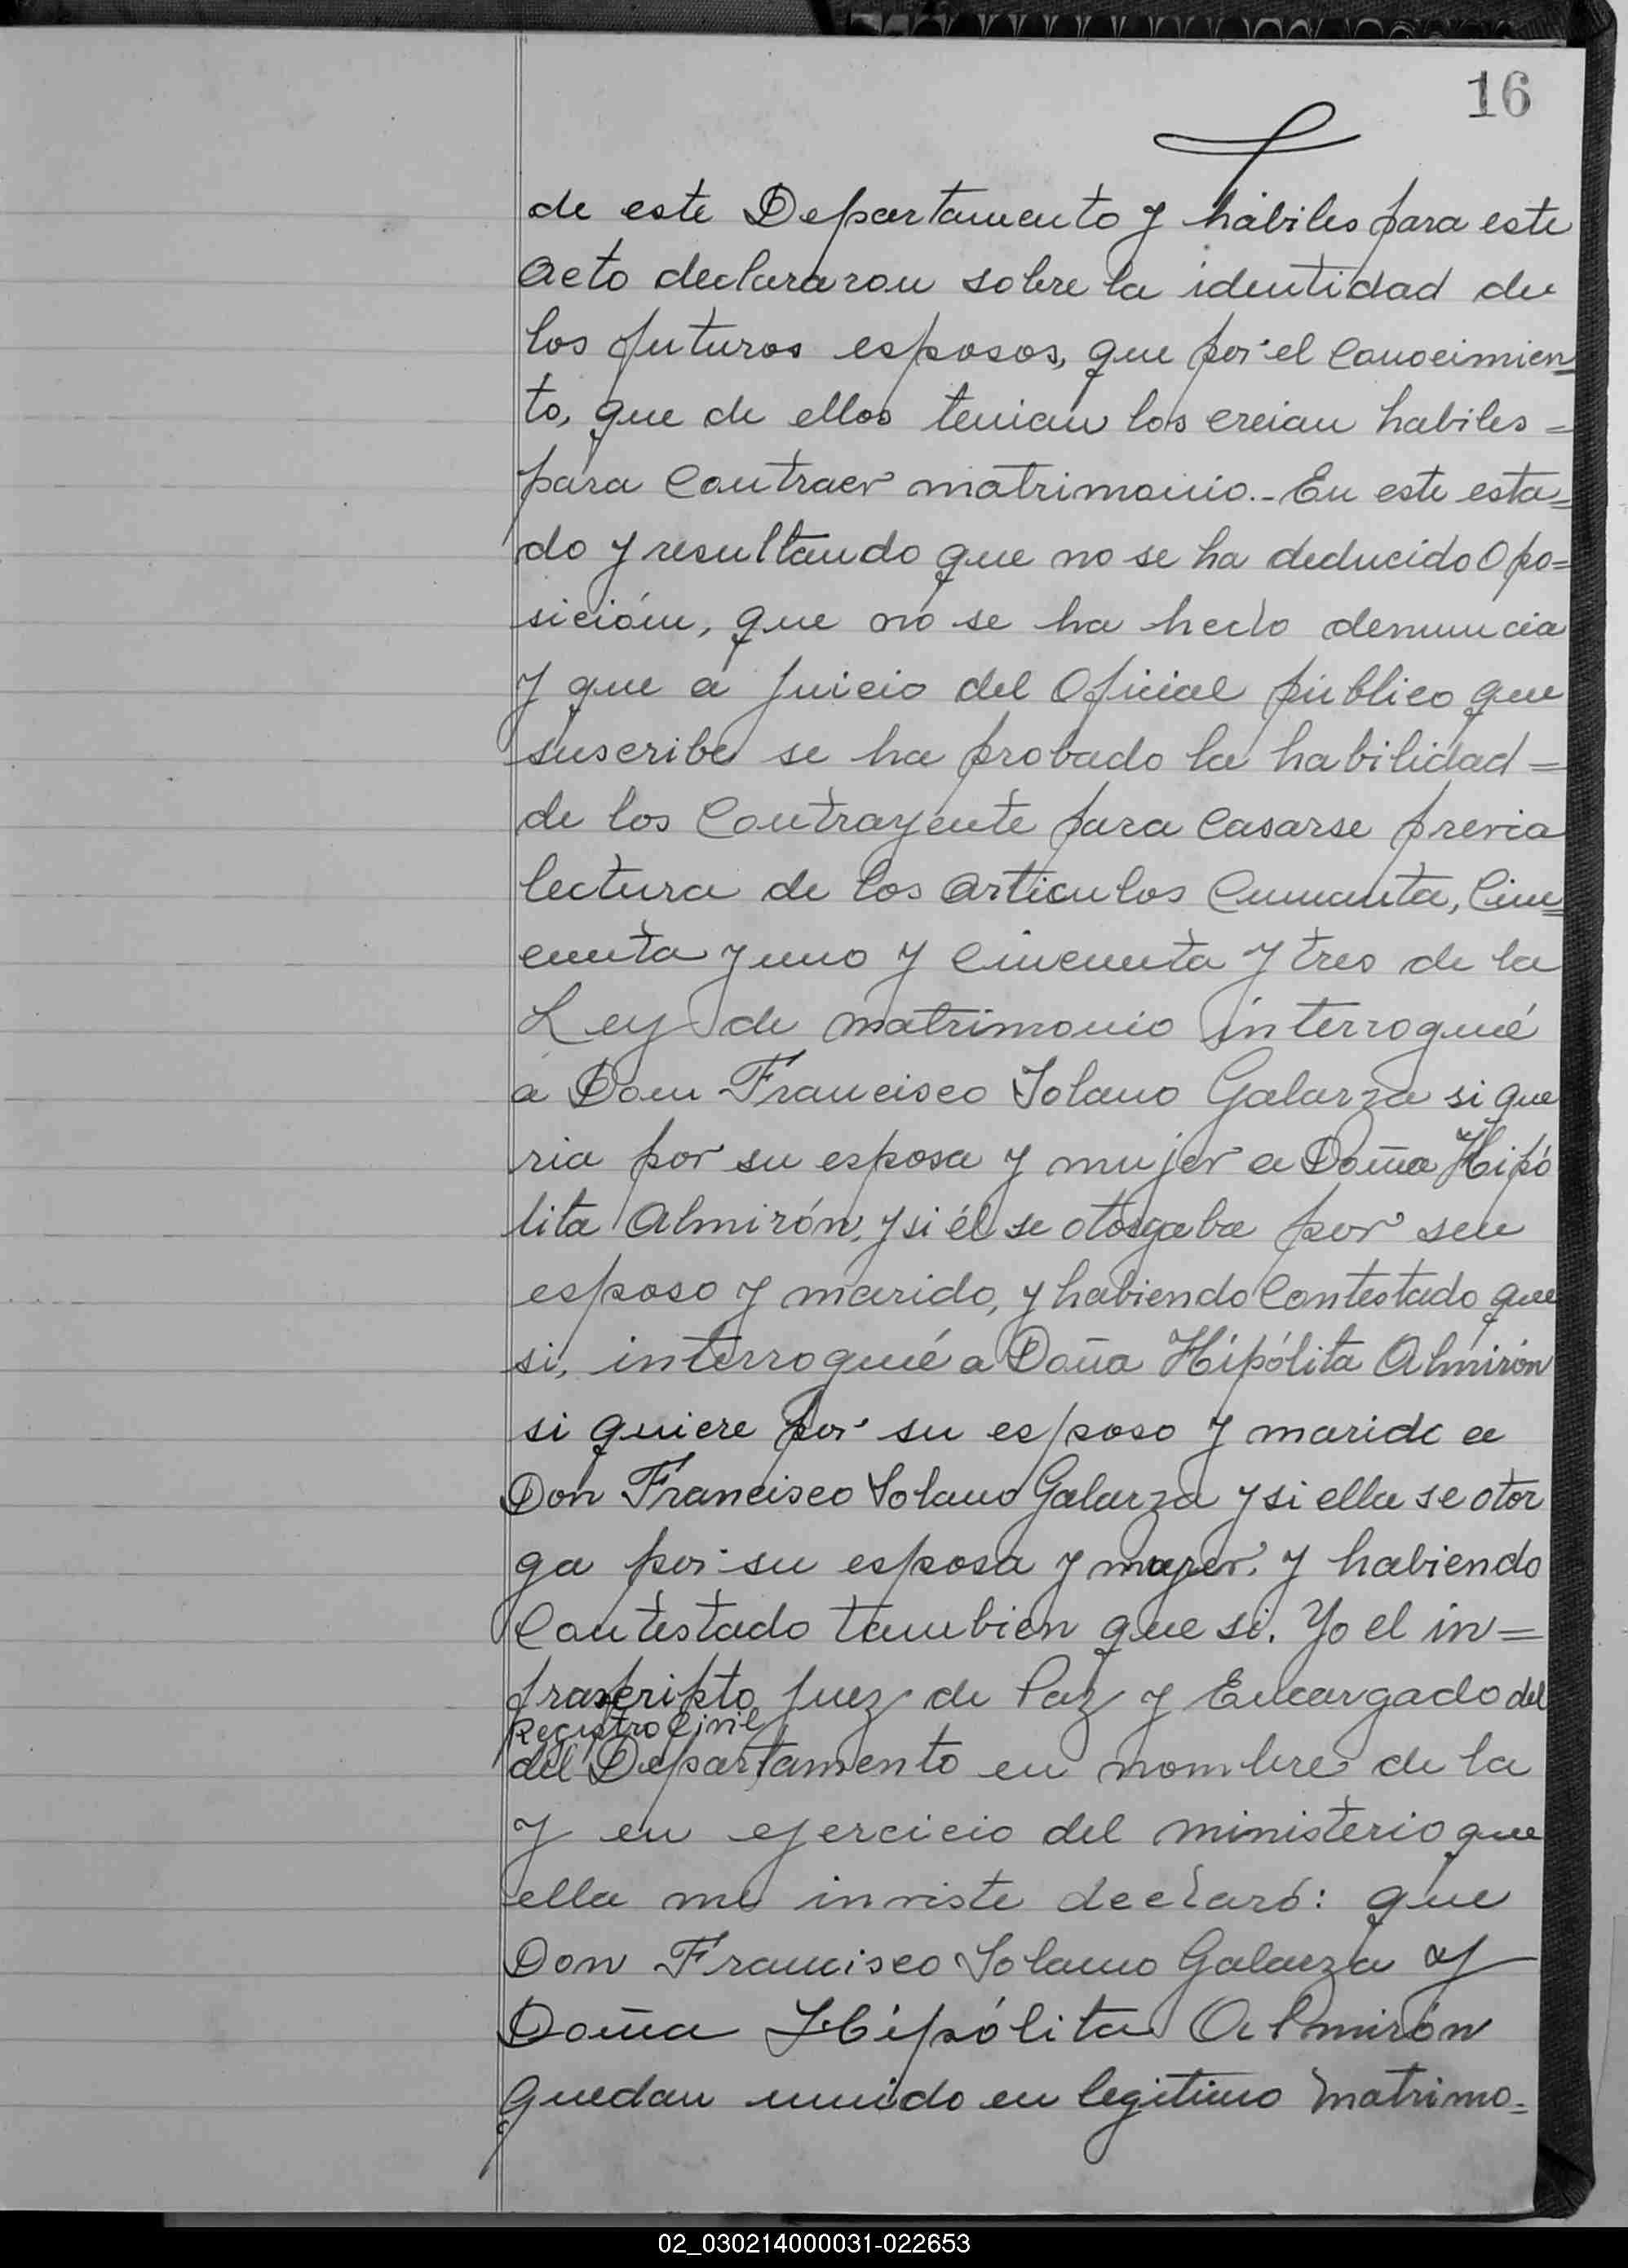 16
de este Departamento y hábiles para este
acto declararon sobre la identidad de
los futuros esposos, que por el conocimien=
to, que de ellos tenian los creian habiles =
para contraer matrimonio.- En este esta=
do y resultando que no se ha deducido opo=
sición, que no se ha hecho denuncia
y que a juicio del Oficial público que
suscribe se ha probado la habilidad =
de los contrayente para casarse previa
lectura de los articulos Cincuenta, Cin=
cuenta y uno y cincuenta y tres de la
Ley de matrimonio interrogué
a Don Francisco Solano Galarza si que
ria por su esposa y mujer a Doña Hipó
lita Almirón, y si él se otorgaba por su
esposo y marido, y habiendo contestado que
si, interrogué a Doña Hipólita Almirón
si quiere por su esposo y marido a
Don Francisco Solano Galarza y si ella se otor
ga por su esposa y mujer. y habiendo
contestado tambien que si. Yo el in=
frascripto Juez de Paz y Encargado del
Registro Civil
del Departamento en nombre de la
y en ejercicio del ministerio que
ella me inviste declaró: que
Don Francisco Solano Galarza y
Doña Hipólita Almirón
quedan unido en legitimo matrimo=
02_030214000031-022653